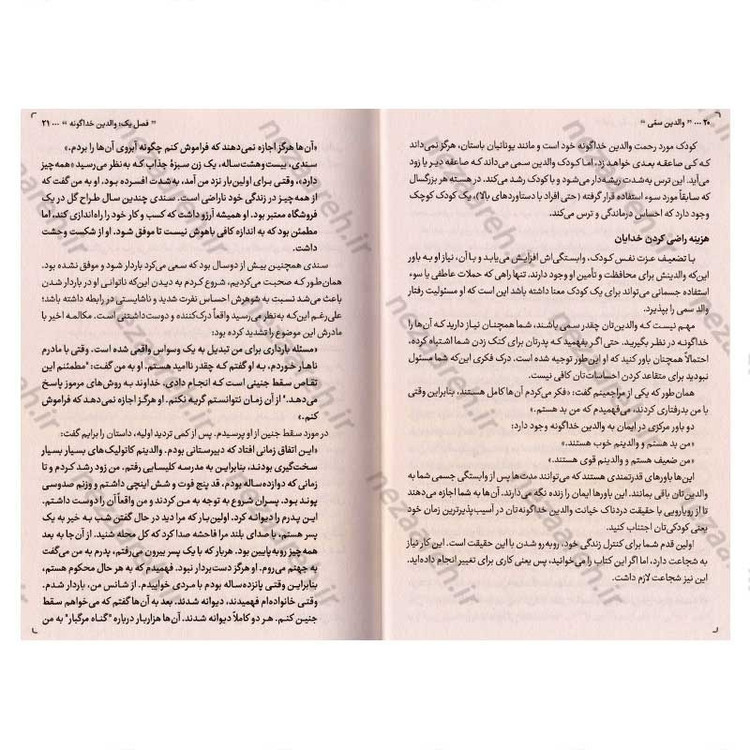 ۲۰ ... " والدین سمّی "
کودک مورد رحمت والدین خداگونه خود است و مانند یونانیان باستان، هرگز نمی‌داند
که کی صاعقه بعدی خواهد زد، اما کودک والدین سمی می‌داند که صاعقه دیر یا زود
می‌آید. این ترس به‌شدت ریشه‌دار می‌شود و با کودک رشد می‌کند. در هسته هر بزرگسال
که سابقاً مورد سوء استفاده قرار گرفته (حتی افراد با دستاوردهای بالا)، یک کودک کوچک
وجود دارد که احساس درماندگی و ترس می‌کند.
هزینه راضی کردن خدایان
با تضعیف عزت نفس کودک، وابستگی‌اش افزایش می‌یابد و با آن، نیاز او به باور
این‌که والدینش برای محافظت و تأمین او وجود دارند. تنها راهی که حملات عاطفی یا سوء
استفاده جسمانی می‌تواند برای یک کودک معنا داشته باشد این است که او مسئولیت رفتار
والد سمی را بپذیرد.
مهم نیست که والدین‌تان چقدر سمی باشند، شما همچنان نیاز دارید که آن‌ها را
خداگونه در نظر بگیرید. حتی اگر بفهمید که پدرتان برای کتک زدن شما اشتباه کرده،
احتمالاً همچنان باور کنید که او این‌طور توجیه شده است. درک فکری این‌که شما مسئول
نبودید برای متقاعد کردن احساسات‌تان کافی نیست.
همان‌طور که یکی از مراجعینم گفت: «فکر می‌کردم آن‌ها کامل هستند، بنابراین وقتی
با من بدرفتاری کردند، می‌فهمیدم که من بد هستم.»
دو باور مرکزی در ایمان به والدین خداگونه وجود دارد:
«من بد هستم و والدینم خوب هستند.»
«من ضعیف هستم و والدینم قوی هستند.»
این‌ها باورهای قدرتمندی هستند که می‌توانند مدت‌ها پس از وابستگی جسمی شما به
والدین‌تان باقی بمانند. این باورها ایمان را زنده نگه می‌دارند. آن‌ها به شما اجازه می‌دهند
تا از رویارویی با حقیقت دردناک خیانت والدین خداگونه‌تان در آسیب‌پذیرترین زمان خود
یعنی کودکی‌تان اجتناب کنید.
اولین قدم شما برای کنترل زندگی خود، روبه‌رو شدن با این حقیقت است. این کار نیاز
به شجاعت دارد، اما اگر این کتاب را می‌خوانید، پس یعنی کاری برای تغییر انجام داده‌اید.
این نیز شجاعت لازم داشت.
" فصل یک؛ والدین خداگونه " ... ۲۱
«آن‌ها هرگز اجازه نمی‌دهند که فراموش کنم چگونه آبروی آن‌ها را بردم.»
سندی، بیست‌وهشت‌ساله، یک زن سبزهٔ جذاب که به‌نظر می‌رسید «همه‌چیز
دارد»، وقتی برای اولین‌بار نزد من آمد، به‌شدت افسرده بود. او به من گفت که
از همه‌چیز در زندگی خود ناراضی است. سندی چندین سال طراح گل در یک
فروشگاه معتبر بود. او همیشه آرزو داشت که کسب و کار خود را راه‌اندازی کند، اما
مطمئن بود که به اندازه کافی باهوش نیست تا موفق شود. او از شکست وحشت
داشت.
سندی همچنین بیش از دو سال بود که سعی می‌کرد باردار شود و موفق نشده بود.
همان‌طور که صحبت می‌کردیم، شروع کردم به دیدن این‌که ناتوانی او در باردار شدن
باعث می‌شد نسبت به شوهرش احساس نفرت شدید و ناشایستی در رابطه داشته باشد؛
علی‌رغم این‌که به‌نظر می‌رسید واقعاً درک‌کننده و دوست‌داشتنی است. مکالمه اخیر با
مادرش این موضوع را تشدید کرده بود:
«مسئله بارداری برای من تبدیل به یک وسواس واقعی شده است. وقتی با مادرم
ناهار خوردم، به او گفتم که چقدر ناامید هستم. او به من گفت: "مطمئنم این
تقاص سقط جنینی است که انجام دادی، خداوند به روش‌های مرموز پاسخ
می‌دهد." از آن زمان نتوانستم گریه نکنم. او هرگز اجازه نمی‌دهد که فراموش
کنم.»
در مورد سقط جنین از او پرسیدم. پس از کمی تردید اولیه، داستان را برایم گفت:
«این اتفاق زمانی افتاد که دبیرستانی بودم. والدینم کاتولیک‌های بسیار بسیار
سخت‌گیری بودند، بنابراین به مدرسه کلیسایی رفتم. من زود رشد کردم و تا
زمانی که دوازده‌ساله بودم، قد پنج فوت و شش اینچی داشتم و وزنم صدوسی
پوند بود. پسران شروع به توجه به من کردند و من واقعاً آن را دوست داشتم.
این پدرم را دیوانه کرد. اولین‌بار که مرا دید در حال گفتن شب به خیر به یک
پسر بودم، با صدای بلند مرا فاحشه صدا کرد که کل محله شنید. از آن‌جا به بعد
همه‌چیز روبه‌پایین بود. هربار که با یک پسر بیرون می‌رفتم، پدرم به من می‌گفت
به جهنم می‌روم. او هرگز دست‌بردار نبود. فهمیدم که به هر حال محکوم هستم،
بنابراین وقتی پانزده‌ساله بودم با مردی خوابیدم. از شانس من، باردار شدم.
وقتی خانواده‌ام فهمیدند، دیوانه شدند. بعد به آن‌ها گفتم که می‌خواهم سقط
جنین کنم. هر دو کاملاً دیوانه شدند. آن‌ها هزاربار درباره "گناه مرگبار" به من
nezareh.ir